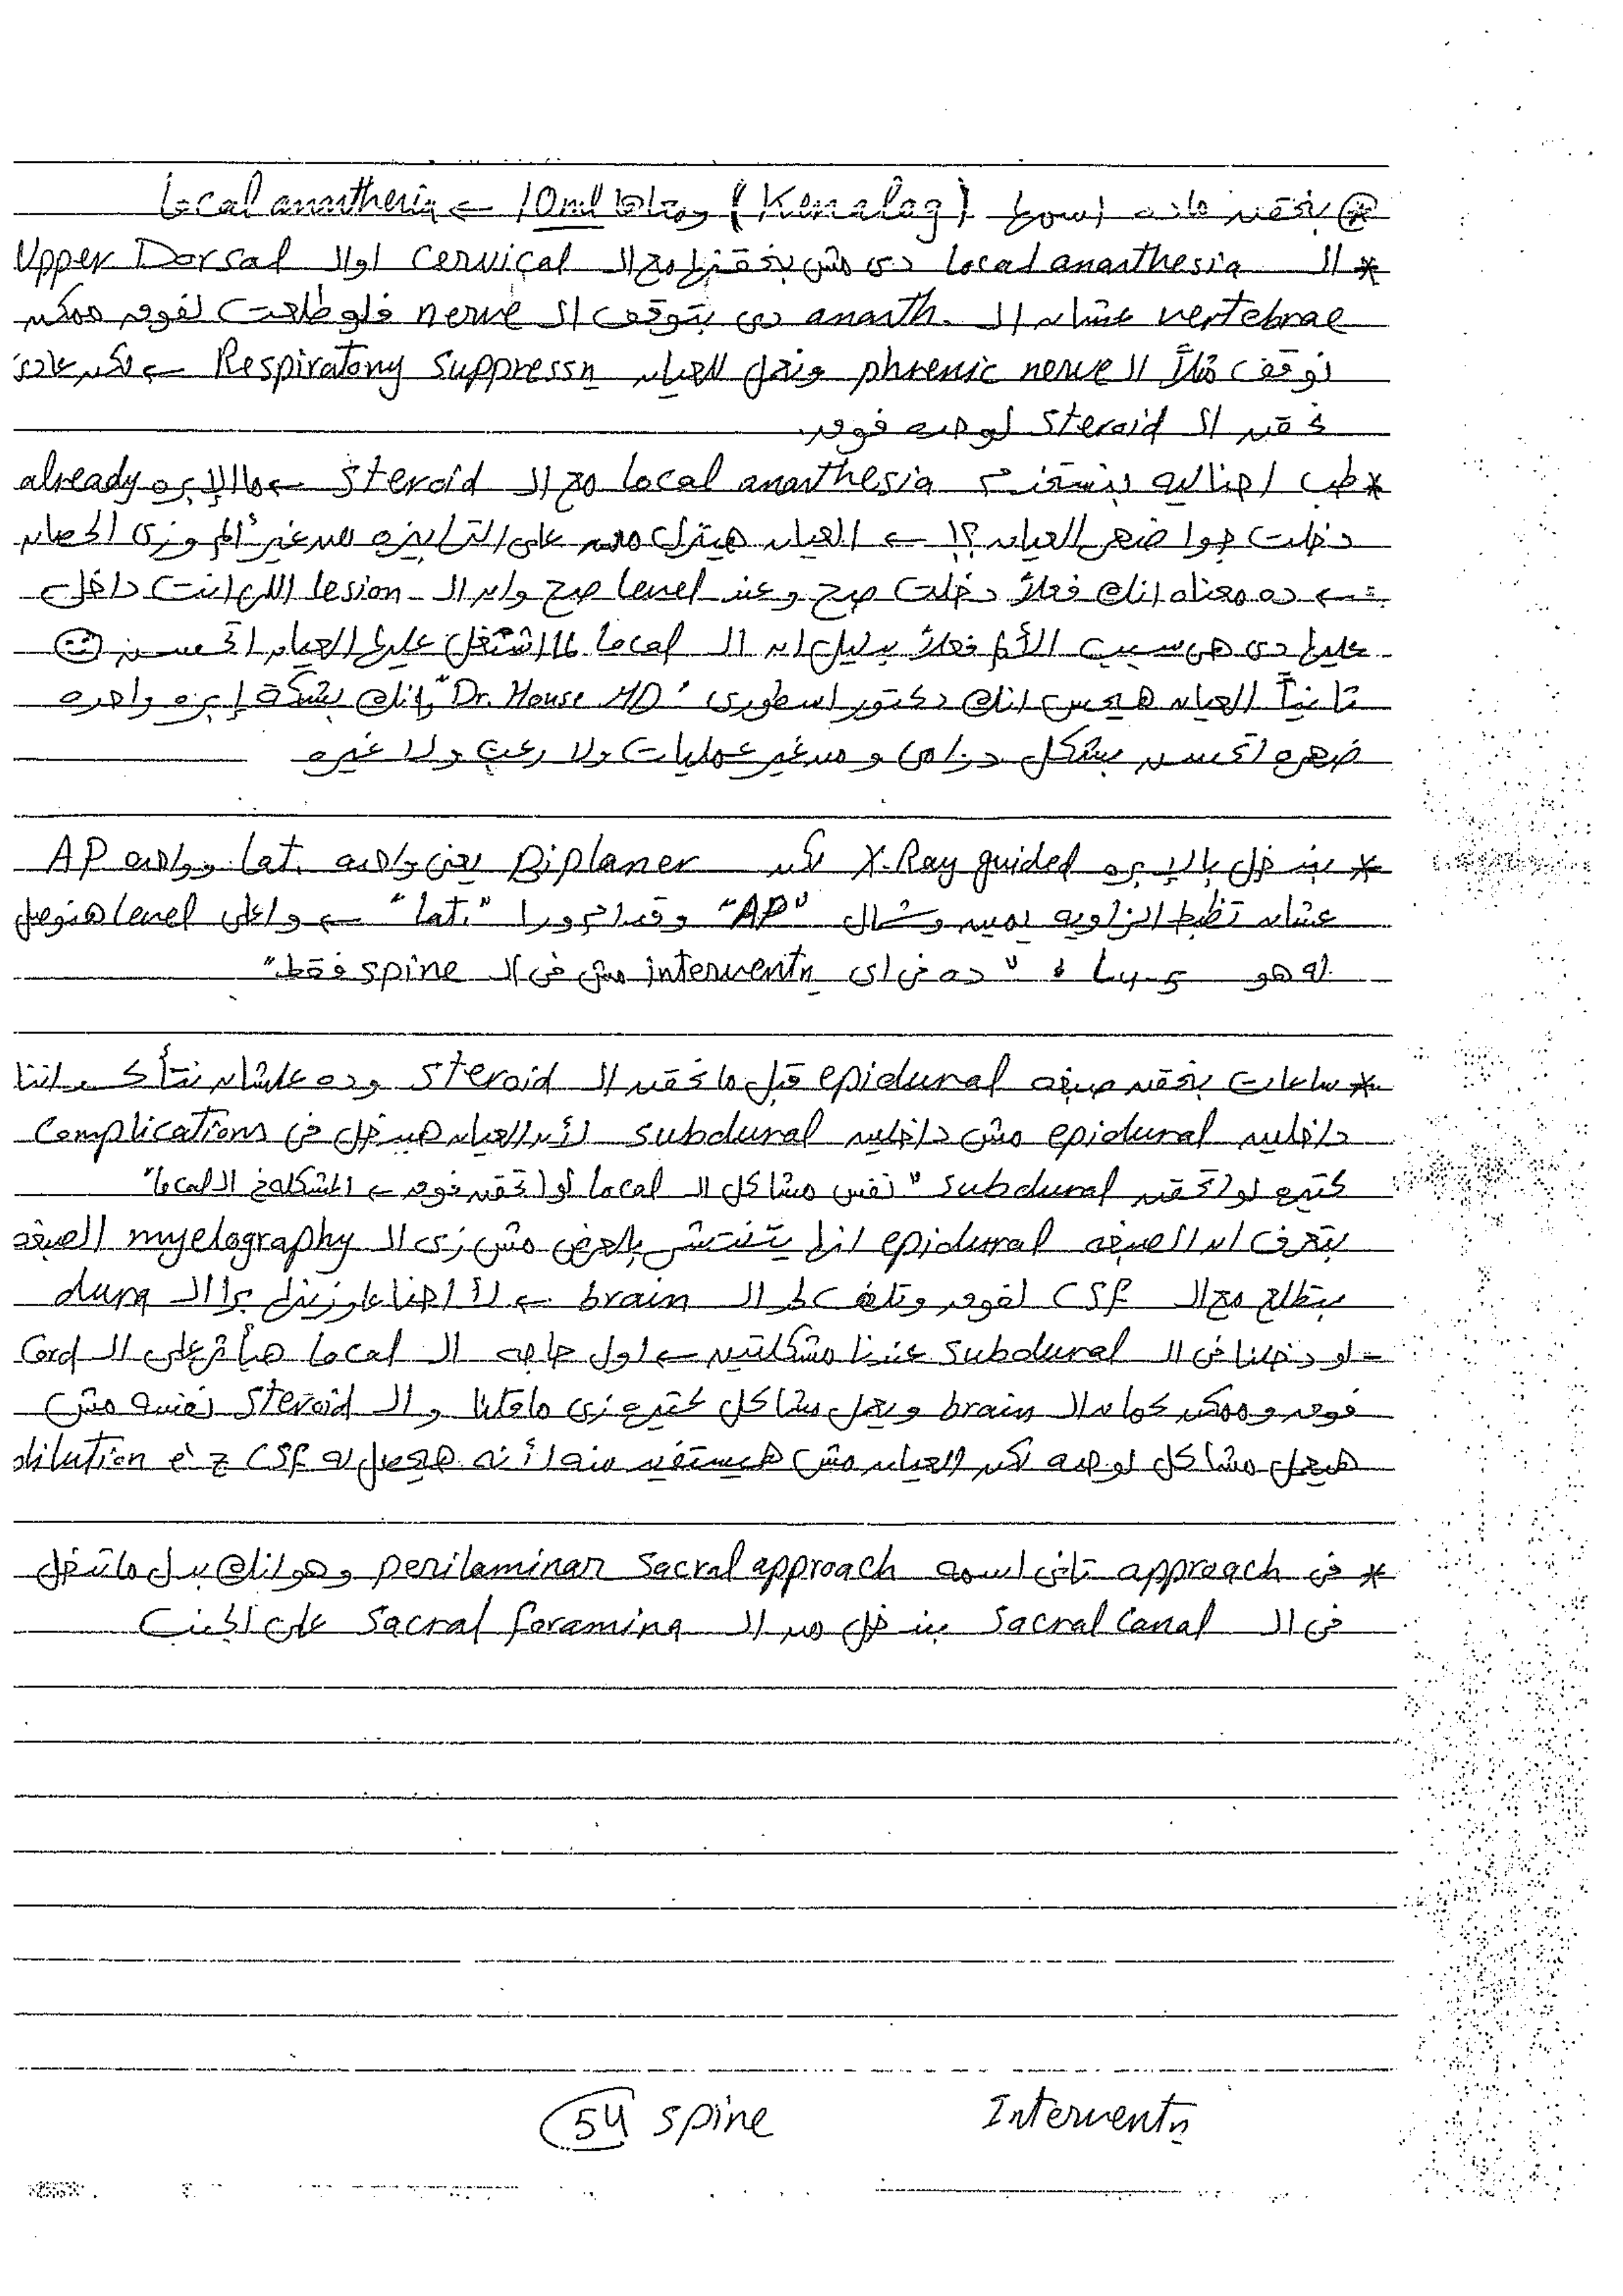 * بنحقن مادة اسمها (Kenalog) ومعاها 10ml ← Local anaesthesia
* الـ Local anaesthesia دى مش بنحقنها مع الـ Cervical او الـ Upper Dorsal
vertebrae عشان الـ anaesth. دى بتوقف الـ nerve فلو طلعت لفوق ممكن
نوقف مثلاً الـ phrenic nerve ونعمل للعيان Respiratory Suppressn ← لكن عادى
نحقن الـ Steroid لوحده فوق.
* طب احنا ليه بنستخدم Local anaesthesia مع الـ Steroid ← ما الإبره already
دخلت جوا ضهر العيان ؟! ← العيان هينزل من على الترابيزه من غير ألم وزى الحصان
ـ ← ده معناه انك فعلاً دخلت صح وعند level صح وان الـ lesion اللى انت داخل
عليها دى هى سبب الألم فعلاً بدليل ان الـ Local لما اشتغل عليها العيان اتحسن ☺
ثانياً العيان هيحس انك دكتور اسطورى "Dr. House MD" وانك بشكة إبره واحده
ضهره اتحسن بشكل درامى و من غير عمليات ولا رعب ولا غيره
* بندخل بالإبره X-Ray guided لكن Biplaner يعنى واحده lat. وواحده AP
عشان تظبط الزاويه يمين وشمال "AP" وقدام ورا "lat." ← واعلى level هنوصل
له هو L4-5 "ده فى اى interventn مش فى الـ spine فقط"
* ساعات بنحقن صبغه epidural قبل ما نحقن الـ Steroid وده علشان نتأكد اننا
داخلين epidural مش داخلين subdural لأن العيان هيدخل فى Complications
كتير لو اتحقن subdural "نفس مشاكل الـ Local لو اتحقن فوق ← المشكله فى الـ Local"
بتعرف ان الصبغه epidural انها بتنتشى بالعرض مش زى الـ myelography الصبغه
بتطلع مع الـ CSF لفوق وتلف حوالين الـ brain ← لأ احنا عاوزينها برا الـ dura
- لو دخلنا فى الـ subdural عندنا مشكلتين ← اول حاجه الـ Local هيأثر على الـ Cord
فوق وممكن كمان الـ brain ويعمل مشاكل كتير زى ما قلنا و الـ Steroid نفسه مش
هيعمل مشاكل لوحده لكن العيان مش هيستفيد منه لأنه هيحصل له dilution مع CSF
* فى approach تانى اسمه perilaminar sacral approach وهو انك بدل ما تدخل
فى الـ Sacral Canal بندخل من الـ Sacral foramina على الجنب
Interventn spine 54